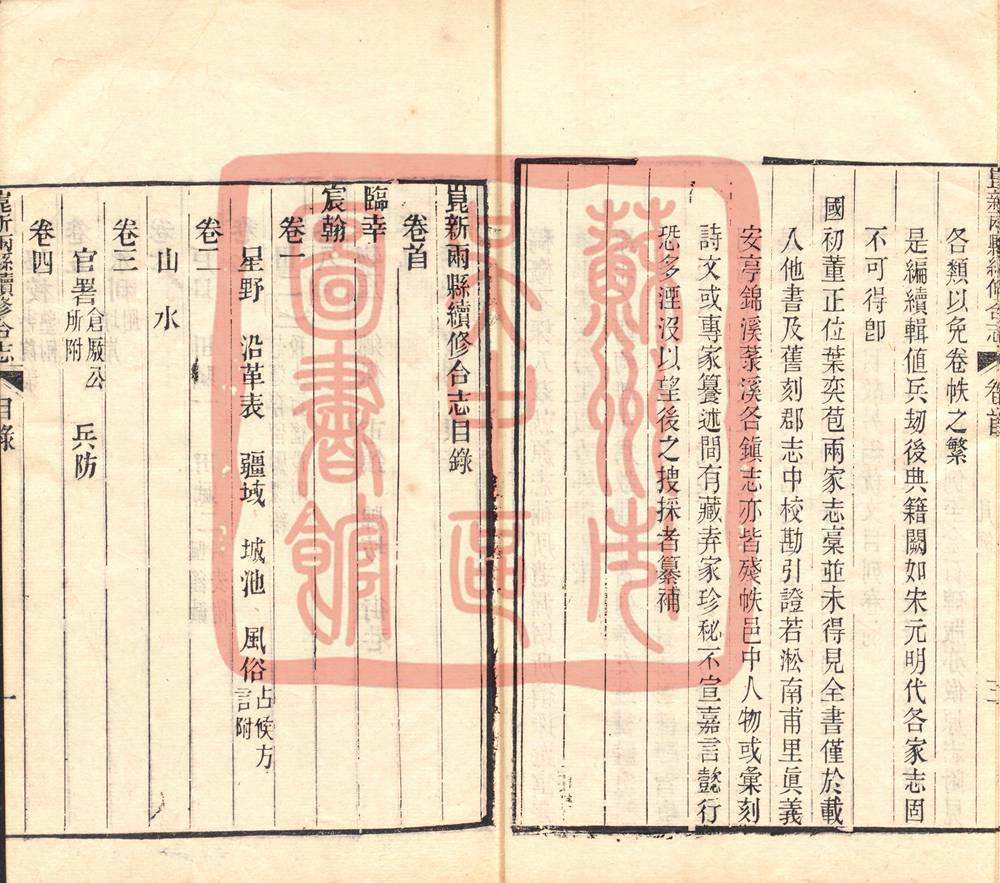 崑新兩縣續修合志
卷首
三
各類以免卷帙之繁
是編續輯值兵刼後典籍闕如宋元明代各家志固
不可得卽
國初董正位葉奕苞兩家志稾並未得見全書僅於載
人他書及舊刻郡志中校勘引證若淞南甫里眞義
安亭錦溪菉溪各鎭志亦皆殘帙邑中人物或彙刻
詩文或專家籑述間有藏弆家珍秘不宣嘉言懿行
恐多湮沒以望後之搜採者纂補
崑新兩縣續修合志目錄
卷首
臨幸
宸翰
卷一
星野 沿革表 疆域 城池 風俗占候方言附
卷二
山 水
卷三
官署倉厫公所附 兵防
卷四
崑新兩縣續修合志
目錄
一
蘇州市
吳中區
圖書館